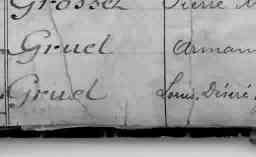 Grosset Pierre M
Gruel Arman
Gruel Louis, Désiré,